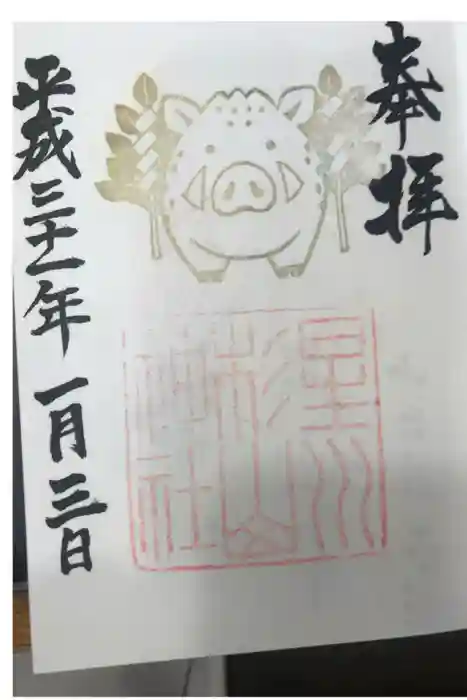 奉拝
星川
杉山
神社
平成三十一年 一月三日